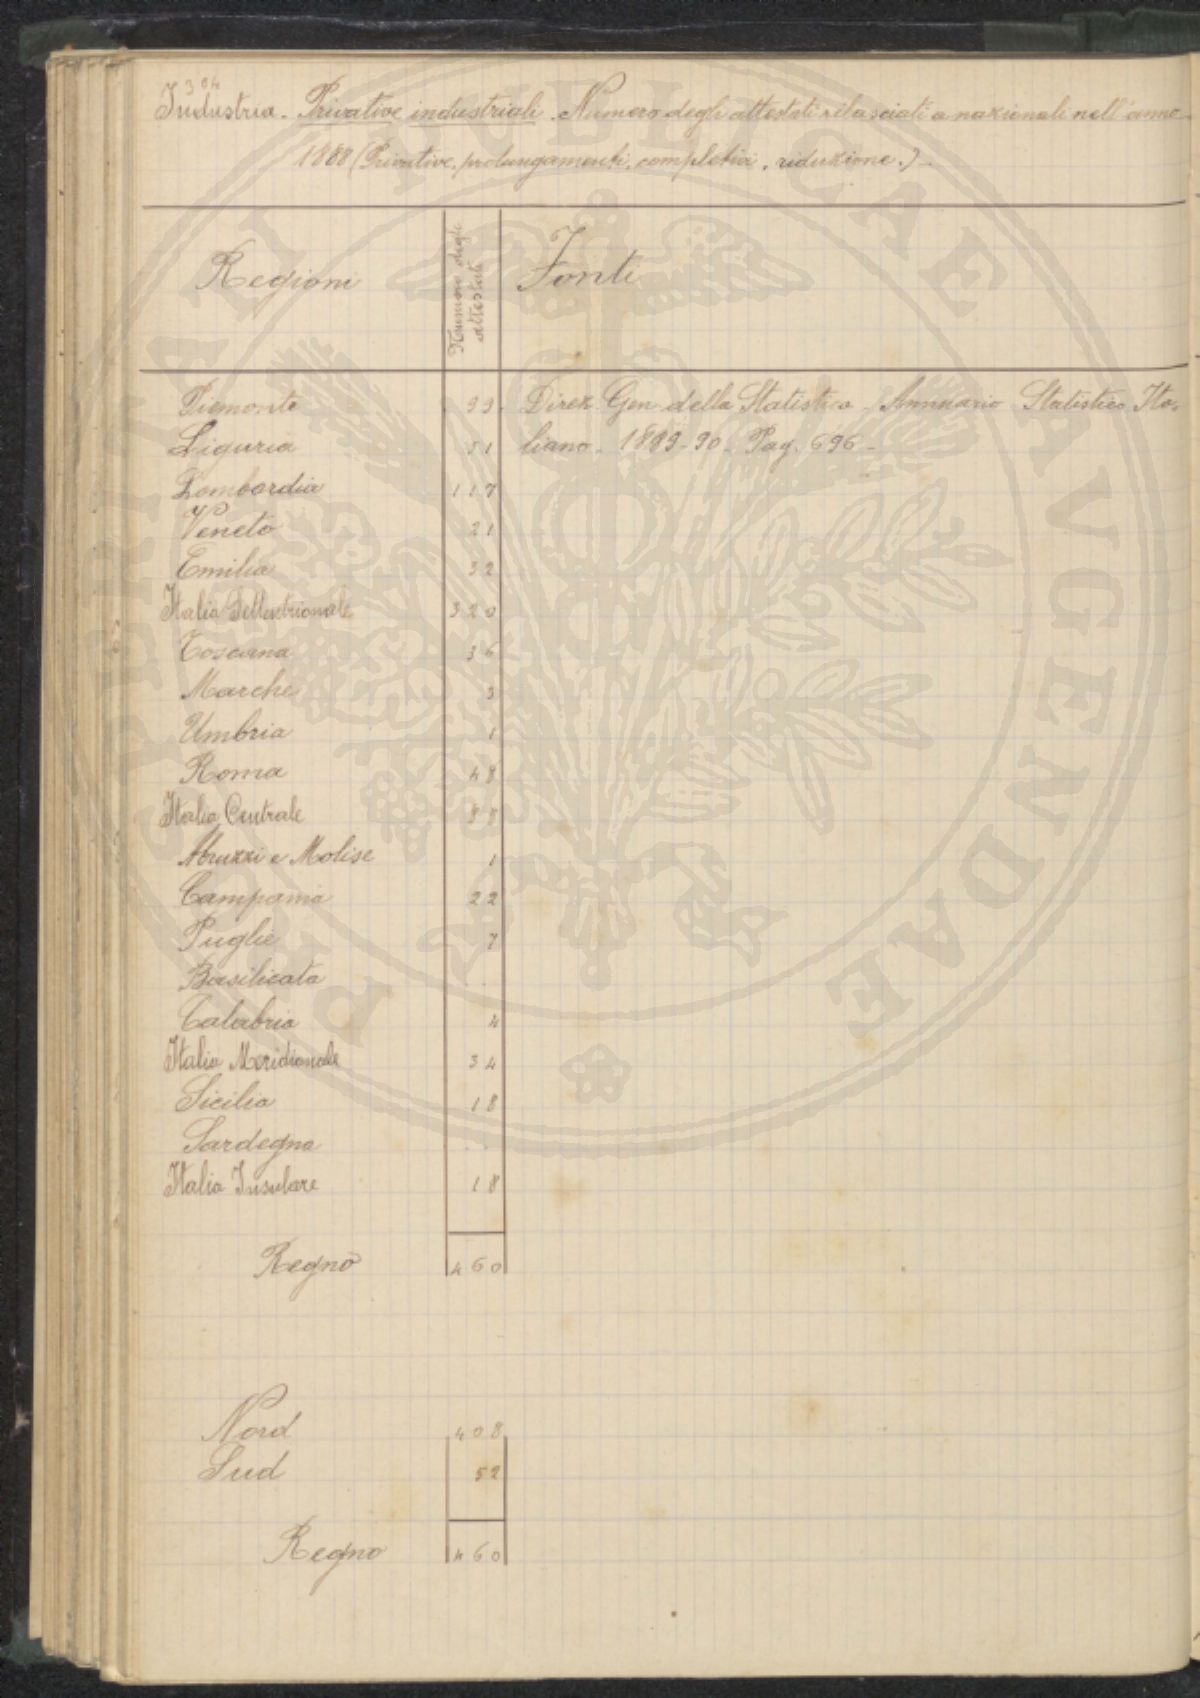 304
Industria - Privative industriali. Numero degli attestati rilasciati a nazionali nell'anno
1888 (Privative, prolungamenti, completivi, riduzione.) -
Regioni Numero degli attestati Fonti
Piemonte 99 Direz. Gen. della Statistica - Annuario Statistico Ita-
Liguria 51 liano - 1889-90 - Pag. 696 -
Lombardia 117
Veneto 21
Emilia 32
Italia Settentrionale 320
Toscana 36
Marche 3
Umbria 1
Roma 48
Italia Centrale 88
Abruzzi e Molise 1
Campania 22
Puglie 7
Basilicata . .
Calabria 4
Italia Meridionale 34
Sicilia 18
Sardegna . .
Italia Insulare 18
Regno 460
Nord 408
Sud 52
Regno 460
PUBLICAE AUGENDAE